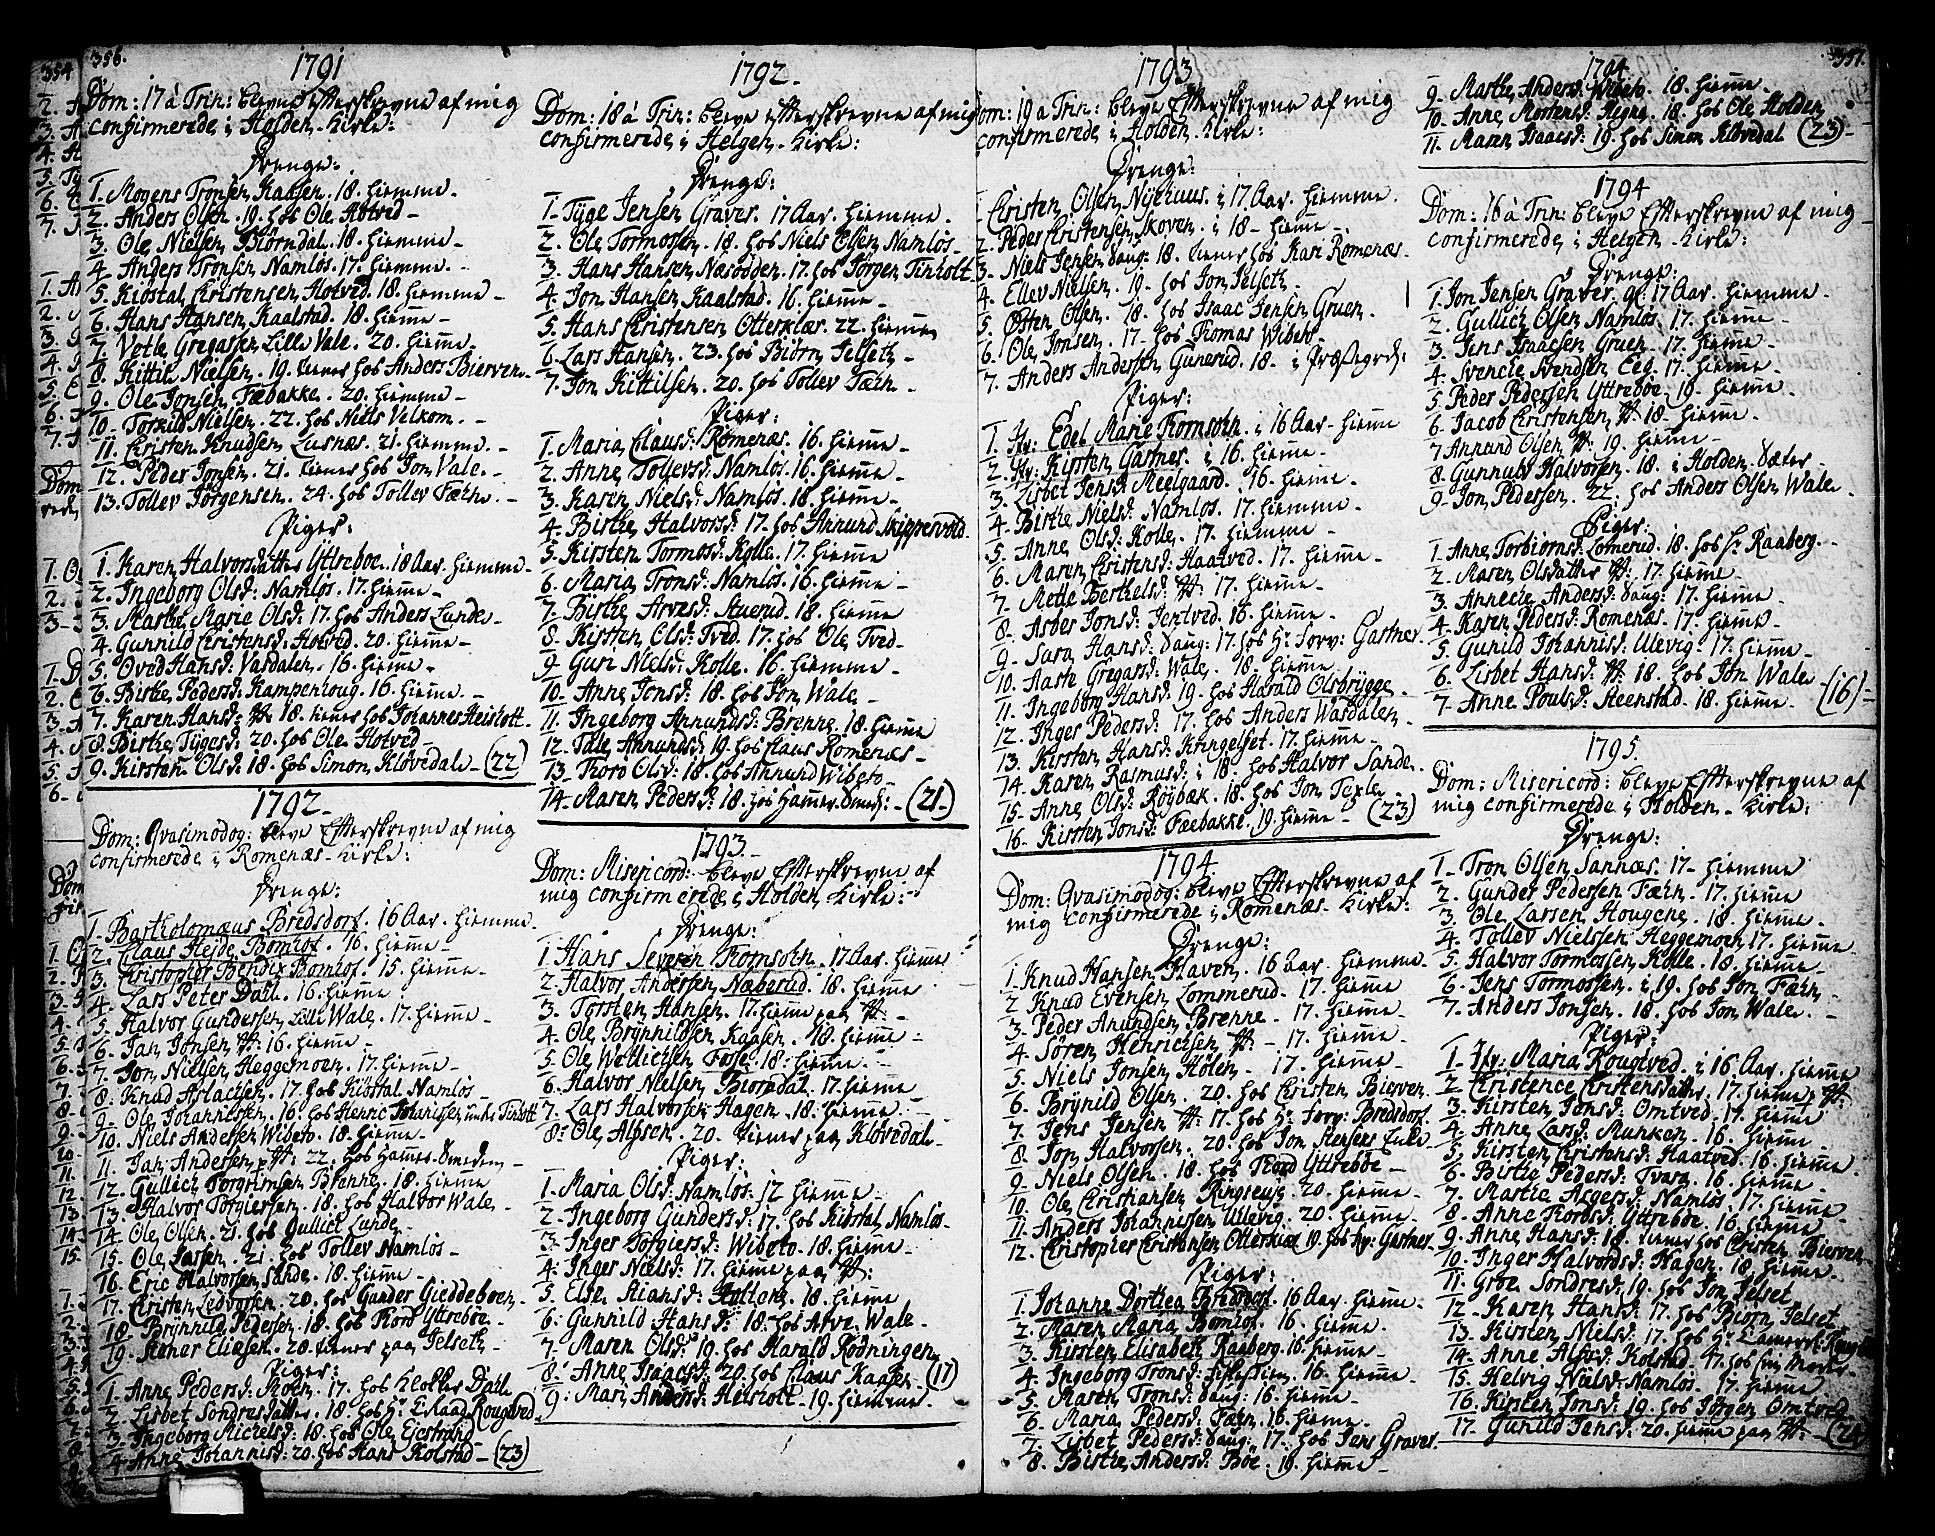 356.
1791
Dom: 17 à Trin: bleve Efterskrevne af mig
confirmerede i Holden Kirke:
Drenge:
1. Mogens Tronsen Kaasen. 18. hiemme.
2. Anders Olsen. 19. hos Ole Hotved
3. Ole Nielsen Biørndal. 18. hiemme
4. Anders Tronsen Namløs. 17. hiemme.
5. Kiøstol Christensen Hotved. 18. hiemme
6. Hans Hansen Kaalstad. 18. hieme
7. Vetle Gregassen Lille Vale. 20. hieme.
8. Kittil Nielsen. 19. tiener hos Anders Bierven
9. Ole Jonsen Fæbakke. 20. hiemme
10. Torkild Nielsen. 22. hos Niels Velkom.
11. Christen Knudsen Lusnæs. 21. hiemme.
12. Peder Jonsen. 21. tiener hos Jon Vale.
13. Tollev Jørgensen. 24. hos Tollev Færn.
Piger:
1. Karen Halvorsdatter Yttrebøe. 18 Aar. hiemme
2. Ingeborg Olsd: Namløs. 17. hieme
3. Marthe Marie Olsd: 17. hos Anders Lunde
4. Gunnild Christensd: Hotved. 20. hieme
5. Oved Hansd: Vasdalen. 16. hieme
6. Birthe Pedersd: Kampenhoug. 16. hieme.
7. Karen Hansd: 18. tiener hos Johannes Heisholt
8. Birthe Tygesd: 20. hos Ole Hotved
9. Kirsten Olsd: 18. hos Simon Kløvedal (22)
1792
Dom: Qvasimodog: bleve Efterskrevne af mig
confirmerede i Romenæs Kirke:
Drenge:
1. Bartholomæus Bredsdorf. 16 Aar. hiemme
2. Claus Hejde Bomhof. 16. hieme
3. Christopher Bendix Bomhof. 15. hieme
4. Lars Peter Dahl. 16. hieme
5. Halvor Gundersen Lille Wale. 17. hieme
6. Jan Jonsen 16. hieme
7. Jon Nielsen Heggemoen. 17. hieme
8. Knud Aslachsen. 17. hos Kiøstal Namløs
9. Ole Johannessen. 16 hos Henric Johannissen under Tinholt
10. Niels Andersen Wibeto. 18. hieme
11. Jan Andersen 22. hos Hamer-Smeden
12. Gullich Torgrimsen Brenne. 18. hieme
13. Halvor Torgiersen. 18. hos Halvor Wale
14. Ole Olsen. 21. hos Gullich Lunde
15. Ole 21. hos Tollev Namløs
16. Eric Halvorsen Sande. 18. hieme
17. Christen Ledvorsen. 20. hos Gunder Gieddeboen
18. Brÿnhild Pedersen. 18. hos Thord Yttrebøe
19. Eliesen. 20. tiener paa Jelseth
Piger:
1. Anne Pedersd: Moen. 17. hos Klokker Dahl
2. Lisbet Sondresdatter. 18 hos Hr Rougtved
3. Ingeborg Michelsd: 18. hos Ole Eiestrand
4. Anne Johannisd: 20. hos Hans Kolstad (23)
1792
Dom: 18 à Trin: bleve Efterskrevne af mig
confirmerede i Helgen Kirke:
Drenge:
1. Tyge Jensen Graver. 17 Aar. hiemme.
2. Ole Tormossen. 18. hos Niels Olsen Namløs
3. Hans Hansen Næsodden. 17. hos Jørgen Tinholt
4. Jon Hansen Kaalstad. 16. hieme
5. Hans Christensen Otterkiær. 22. hieme
6. Lars Hansen. 23. hos Biørn Jelseth
7. Jon Kittilsen. 20. hos Tollev Færn
Piger:
1. Maria Clausd: Romenæs. 16. hieme
2. Anne Tollevsd: Namløs. 16. hieme
3. Karen Nielsd: Namløs. 18. hieme
4. Birthe Halvorsd: 17. hos Annund Skippervold.
5. Kirsten Tormosd: Kolle. 17. hieme
6. Maria Tronsd: Namløs. 16. hieme
7. Birthe Arvesd: Stuerud. 18. hieme
8. Kirsten Olsd: Tved. 17. hos Ole Tved
9. Guri Nielsd: Kolle. 16. hiemme
10. Anne Jonsd: 18. hos Jon Wale
11. Ingeborg Annundsd: Brenne. 18. hieme
12. Tale Annundsd: 19. hos Claus Romenæs
13. Thoro Olsd: 18. hos Annund Wibeto
14. Maren Pedersd: 18. hos Hamer-Smed: (21)
1793
Dom: Misericord: bleve Efterskrevne af
mig confirmerede i Holden Kirke:
Drenge:
1. Hans Severin Thomsohn. 17 Aar. hieme
2. Halvor Andersen Næberud. 18. hieme
3. Torsten Hansen. 17. hieme paa
4. Ole Brynnildsen Kaasen. 18. hieme
5. Ole Wetlichsen 18. hieme
6. Halvor Nielsen Biørndal. 17. hieme
7. Lars Halvorsen Hagen. 18. hieme
8. Ole Alfsen. 20. tiener paa Kløvedal
Piger:
1. Maria Olsd: Namløs. 17 hieme
2. Ingeborg Gundersd: 17. hos Kiøstal Namløs
3. Inger Torgiersd: Wibeto. 18. hieme
4. Inger Nielsd: 17. hieme paa
5. Else Hansd: 18. hieme
6. Gunnild Hansd: 18. hos Arve Wale
7. Maren Olsd: 19. hos Harald Rødningen
8. Anne Isaacsd: 20. hos Claus Kaasen (17)
9. Mari Andersd: Heisholt 19. hieme.
357.
1793
Dom: 19 a Trin: bleve Efterskrevne af mig
confirmerede i Holden Kirke:
Drenge:
1. Christen Olsen Nyehuus. i 17 Aar. hiemme
2. Peder Christensen Skoven. i 18 hieme
3. Niels Jensen Haug: 18. tiener hos Kari Romenæs.
4. Ellev Nielsen. 19. hos Jon Jelseth
5. Østen Olsen. 18. hos Isaac Jensen Gruen.
6. Ole Jonsen. 17. hos Thomas Wibeto
7. Anders Andersen Gunerud. 18. i Præstegrd:
Piger:
1. Jfr: Edel Marie Thomsohn. i 16 Aar hieme
2. Jfr: Kirsten Gartner. i 16. hieme.
3. Lisbet Jensd: Meelgaard. 16. hieme
4. Birthe Nielsd: Namløs. 17. hiemme.
5. Anne Olsd: Kolle. 17. hiemme
6. Maren Christensd: Haatved. 17. hieme
7. Mette Berthelsd: 17. hieme
8. Asber Jonsd: Jentved. 16. hieme
9. Sara Hansd: Haug: 17. hos Hr Forv: Gartner.
10. Aaste Gregarsd: Wale. 18. hieme
11. Ingeborg Hansd: 19. hos Harald Olsbrygge
12. Inger Pedersd: 17. hos Anders Wasdalen
13. Kirsten Hansd: Kringelset. 17. hieme
14. Karen Rasmusd: i 18. hos Halvor Sande.
15. Anne Olsd: Røÿbæk. 18. hos Jon Texle
16. Kirsten Jonsd: Fæebakke. 19. hieme (23)
1794
Dom: Qvasimodog: bleve Efterskrevne af
mig confirmerede i Romenæs Kirke:
Drenge:
1. Knud Hansen Haven. 16 Aar. hiemme
2. Knud Evensen Lommerud. 17. hieme
3. Peder Anundsen Brenne. 17. hieme
4. Søren Henrichsen 17. hieme
5. Niels Jonsen Holen. 17. hieme
6. Brÿnild Olsen. 20. hos Christen Bierven
7. Jens Jensen 17. hos Hr Forv: Bredsdorf.
8. Jon Halvorsen. 20. hos Jon Jensens Enke
9. Niels Olsen. 18. hos Thord Yttrebøe
10. Ole Christiansen Ringhuus. 20. hieme
11. Anders Johannessen Ullevig. 20. hieme
12. Christopher Christensen Otterkiær 19. hos Hr: Gartner
Piger:
1. Johanne Dorthea Bredsdorf. 16 Aar. hieme.
2. Maren Maria Bomhof. 16. hieme.
3. Kirsten Elisabeth Raaberg. 16. hieme
4. Ingeborg Tronsd: 16. hieme
5. Maren Tronsd: Haug: 16. hieme
6. Maria Pedersd: Færn. 16. hieme
7. Lisbet Pedersd: Haug: 17. hos Jens Graver.
8. Birthe Andersd: Bøe. 19. hieme
1794
9. Marthe Andersd: Wibeto. 18. hieme.
10. Anne Mortensd: Hegna. 18. hos Ole Holden
11. Maren Isaacsd: 19. hos Simon Kløvedal (23)
1794
Dom: 16 à Trin: bleve Efterskrevne af mig
confirmerede i Helgen Kirke:
Drenge:
1. Jon Jensen Graver. 17 Aar. hiemme
2. Gullich Olsen Namløs. 17. hieme
3. Jens Isaacsen Gruen. 17. hieme
4. Svenche Svendsen Eeg. 17. hieme
5. Peder Pedersen Yttrebøe. 19. hieme
6. Jacob Christensen 18. hieme
7. Annund Olsen 19. hieme
8. Gunnulv Halvorsen. 18. i Holden Sæter
9. Jon Pedersen. 22. hos Anders Olsen Wale.
Piger:
1. Anne Torbiørnsd: Lomerud. 18. hos Hr Raaberg.
2. Maren Olsdatter 17. hieme
3. Annechie Andersd: Haug: 17. hieme
4. Karen Pedersd: Romenæs. 17. hieme
5. Gunild Johannisd: Ulevig. 17. hieme
6. Lisbet Hansd: 18. hos Jon Wale
7. Anne Poulsd: Steenstad. 18. hieme. (16)
1795.
Dom: Misericord: bleve Efterskrevne af
mig confirmerede i Holden Kirke:
Drenge:
1. Tron Olsen Sannæs. 17. hieme
2. Gunder Pedersen Færn. 17. hieme
3. Ole Larsen Hougene. 18. hieme
4. Tollev Nielssen Heggemoen 17. hieme
5. Halvor Tormossen Kolle. 18. hieme
6. Jens Tormossen. i 19. hos Jon Færn
7. Anders Jonsen. 18. hos Jon Wale.
Piger:
1. Jfr: Maria Rougtved. i 16 Aar. hieme
2. Christence Christensdatter. 17. hieme
3. Kirsten Jensd: Omtved. 17. hieme
4. Anne Larsd: Munken. 16. hieme
5. Kirsten Christensd: Haatved. 16. hieme
6. Birthe Pedersd: Tvara. 16. hieme
7. Marthe Asgersd: Namløs. 17. hieme
8. Anne Thorsd: Yttrebøe. 16. hieme
9. Anne Hansd: 18. tiener hos Christen Bierven
10. Inger Halvordsd: Hagen. 18. hieme.
11. Groe Sondresd: 19. hos Jon Jelset
12. Karen Hansd: 17. hos Biørn Jelset
13. Kirsten Nielsd: 17. hos Hr
14. Anne Alfsd: Kolstad. 17. hos sin Moder
15. Helvig Nielsd: Namløs. 17. hieme
16. Kirsten Jonsd: 19. hos Jørgen Omtved
17. Gunild Jensd: 20. hieme paa (24)